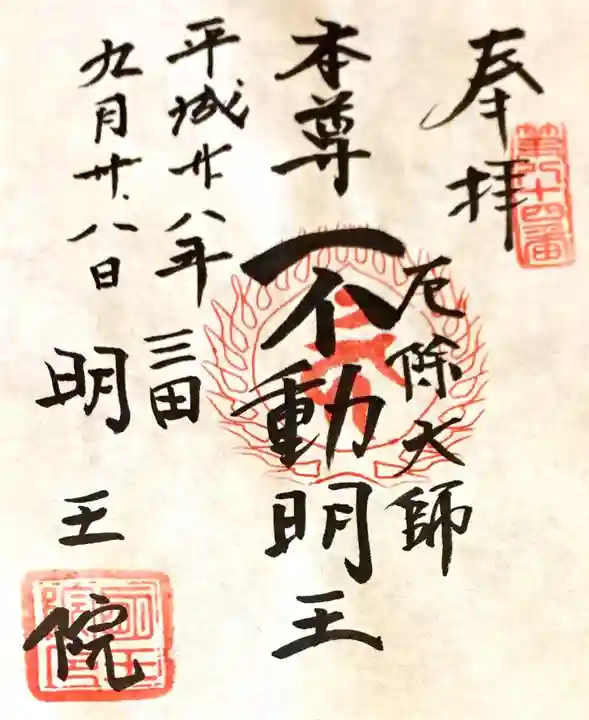 奉拝
第八十四番
厄除大師
本尊
不動明王
平成廿八年
三田
九月廿八日
明王院